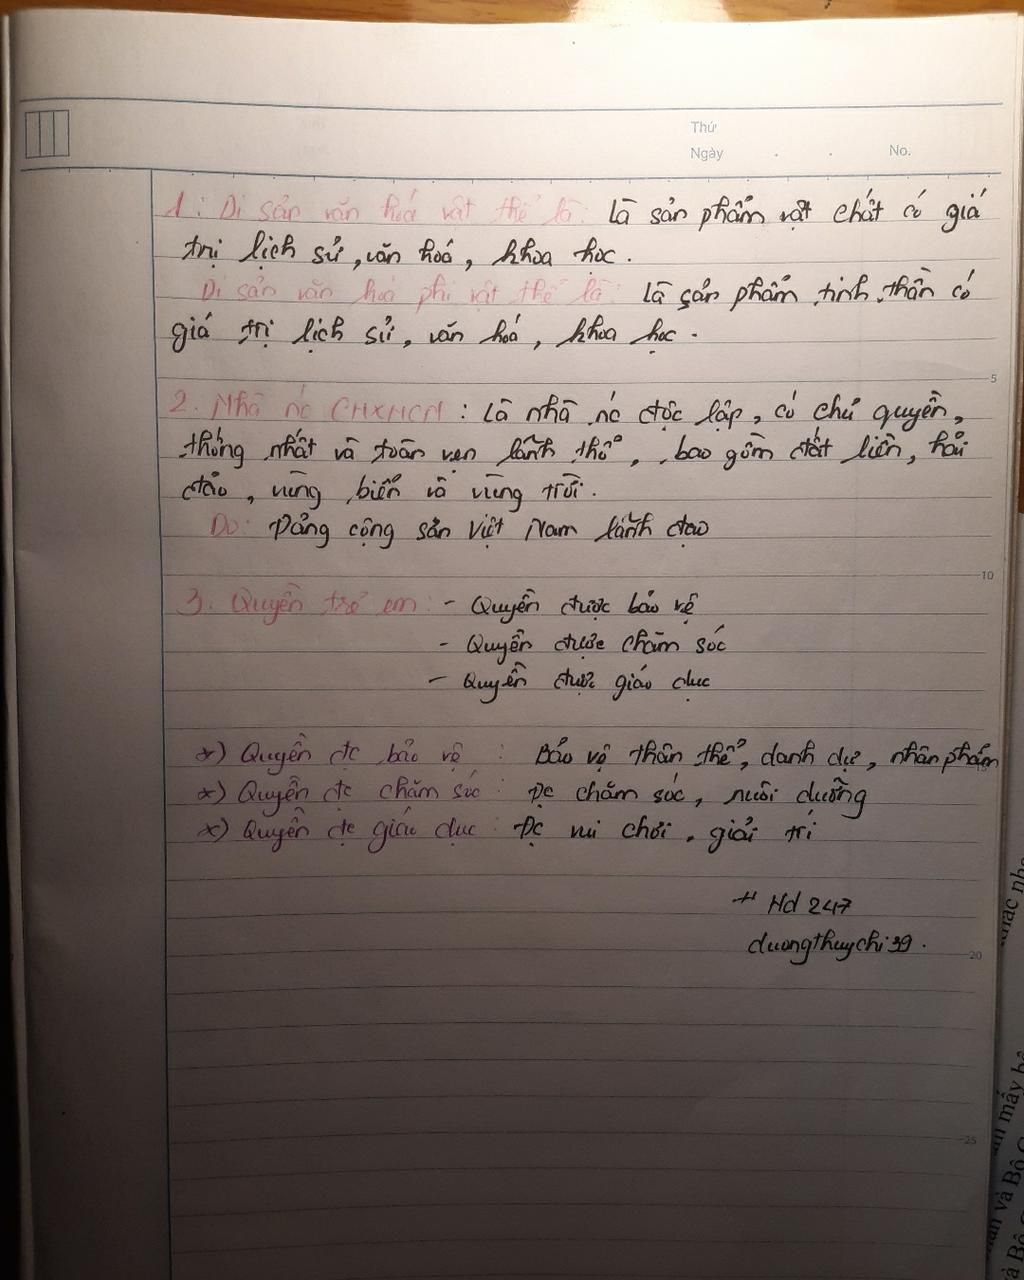 Thứ
Ngày . . No.
1: Di sản văn hoá vật thể là: Là sản phẩm vật chất có giá
trị lịch sử, văn hoá, khoa học.
Di sản văn hoá phi vật thể là: Là sản phẩm tinh thần có
giá trị lịch sử, văn hoá, khoa học.
5
2. Nhà nc CHXHCN: Là nhà nc độc lập, có chủ quyền,
thống nhất và toàn vẹn lãnh thổ, bao gồm đất liền, hải
đảo, vùng biển và vùng trời.
Do: Đảng cộng sản Việt Nam lãnh đạo
10
3. Quyền trẻ em: - Quyền được bảo vệ
- Quyền được chăm sóc
- Quyền được giáo dục
*) Quyền đc bảo vệ : Bảo vệ thân thể, danh dự, nhân phẩm
*) Quyền đc chăm sóc : Đc chăm sóc, nuôi dưỡng
*) Quyền đc giáo dục : Đc vui chơi, giải trí
# Hd 247
duongthuychi39.
20
25